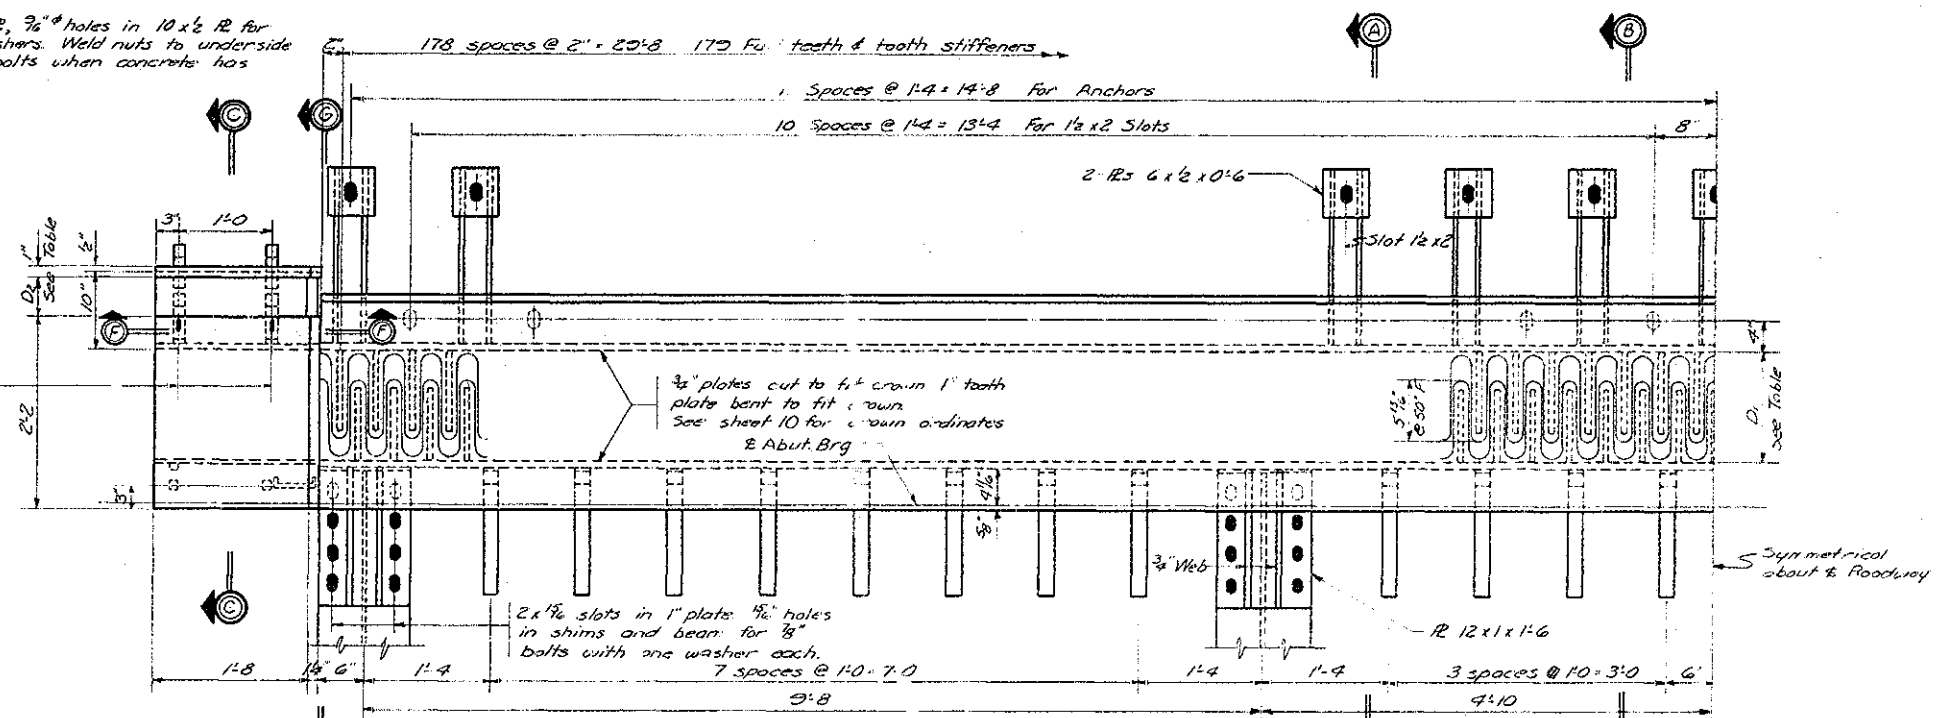 9/16"ø holes in 10 x ½ PL for
Weld nuts to underside
bolts when concrete has
2"
178 spaces @ 2" = 29'-8 179 Fu teeth & tooth stiffeners
A
B
Spaces @ 1'-4 = 14'-8 For Anchors
C
G
10 Spaces @ 1'-4 = 13'-4 For 1½ x 2 Slots
8"
2-PLs 6 x ½ x 0'-6
3"
1'-0
Slot 1½ x 2
1"
½"
D2
See Table
10"
F
F
4"
2'-2
¾" plates cut to fit crown 1" tooth
plate bent to fit crown.
See sheet 10 for crown ordinates
5 15/16"
@ 50° F
D1
See Table
℄ Abut. Brg
3"
4 11/16"
5/8"
¾" Web
Symmetrical
about ℄ Roadway
C
2 x 15/16 slots in 1" plate 15/16" holes
in shims and beam for 7/8"
bolts with one washer each.
PL 12 x 1 x 1'-6
1'-8
6"
1'-4
7 spaces @ 1'-0 = 7'-0
1'-4
1'-4
3 spaces @ 1'-0 = 3'-0
6"
9'-8
4'-10